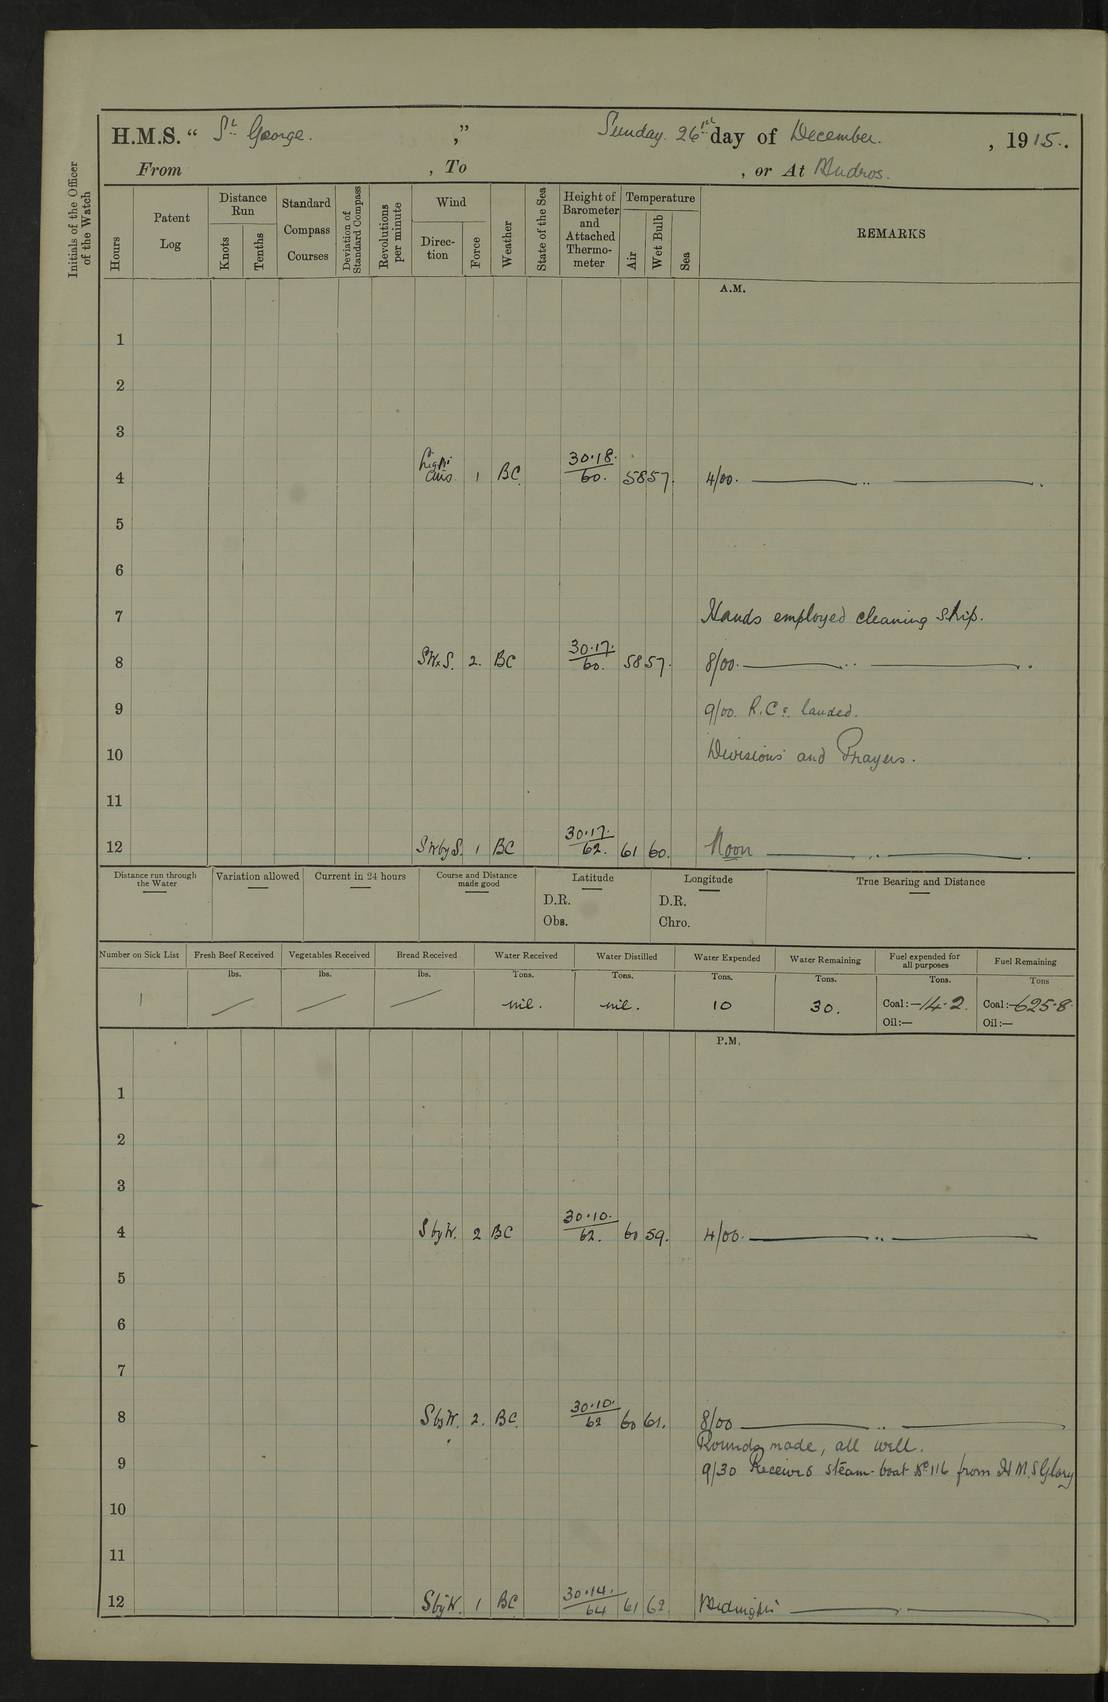 H.M.S. “ St George. ,” Sunday. 26th day of December. , 1915.
From , To , or At Mudros.
Initials of the Officer of the Watch
Hours
Patent Log
Distance Run
Knots
Tenths
Standard Compass Courses
Deviation of Standard Compass
Revolutions per minute
Wind
Direc-tion
Force
Weather
State of the Sea
Height of Barometer and Attached Thermo-meter
Temperature
Air
Wet Bulb
Sea
REMARKS
A.M.
1
2
3
4 Light Airs. 1 BC. 30.18. 60. 58 57. 4/00. ——— .. ——— .
5
6
7 Hands employed cleaning ship.
8 SWxS. 2. BC 30.17. 60. 58 57. 8/00. ——— .. ——— .
9 9/00. R.Cs. landed.
10 Divisions and Prayers.
11
12 SWbyS. 1 BC 30.17. 62. 61 60. Noon ——— .. ——— .
Distance run through the Water
Variation allowed
Current in 24 hours
Course and Distance made good
Latitude
D.R.
Obs.
Longitude
D.R.
Chro.
True Bearing and Distance
Number on Sick List
Fresh Beef Received
Vegetables Received
Bread Received
Water Received
Water Distilled
Water Expended
Water Remaining
Fuel expended for all purposes
Fuel Remaining
lbs. lbs. lbs. Tons. Tons. Tons. Tons. Tons. Tons
1 nil. nil. 10 30. Coal:—14.2. Coal:—625.8.
Oil:— Oil:—
P.M.
1
2
3
4 SbyW. 2 BC 30.10. 62. 60 59. 4/00. ——— .. ———
5
6
7
8 SbyW. 2. BC. 30.10. 62 60 61. 8/00 ——— .. ———
Rounds made, all well.
9 9/30 Received steam-boat No 116 from H.M.S Glory
10
11
12 SbyW. 1 BC 30.14. 64 61 62 Midnight ———